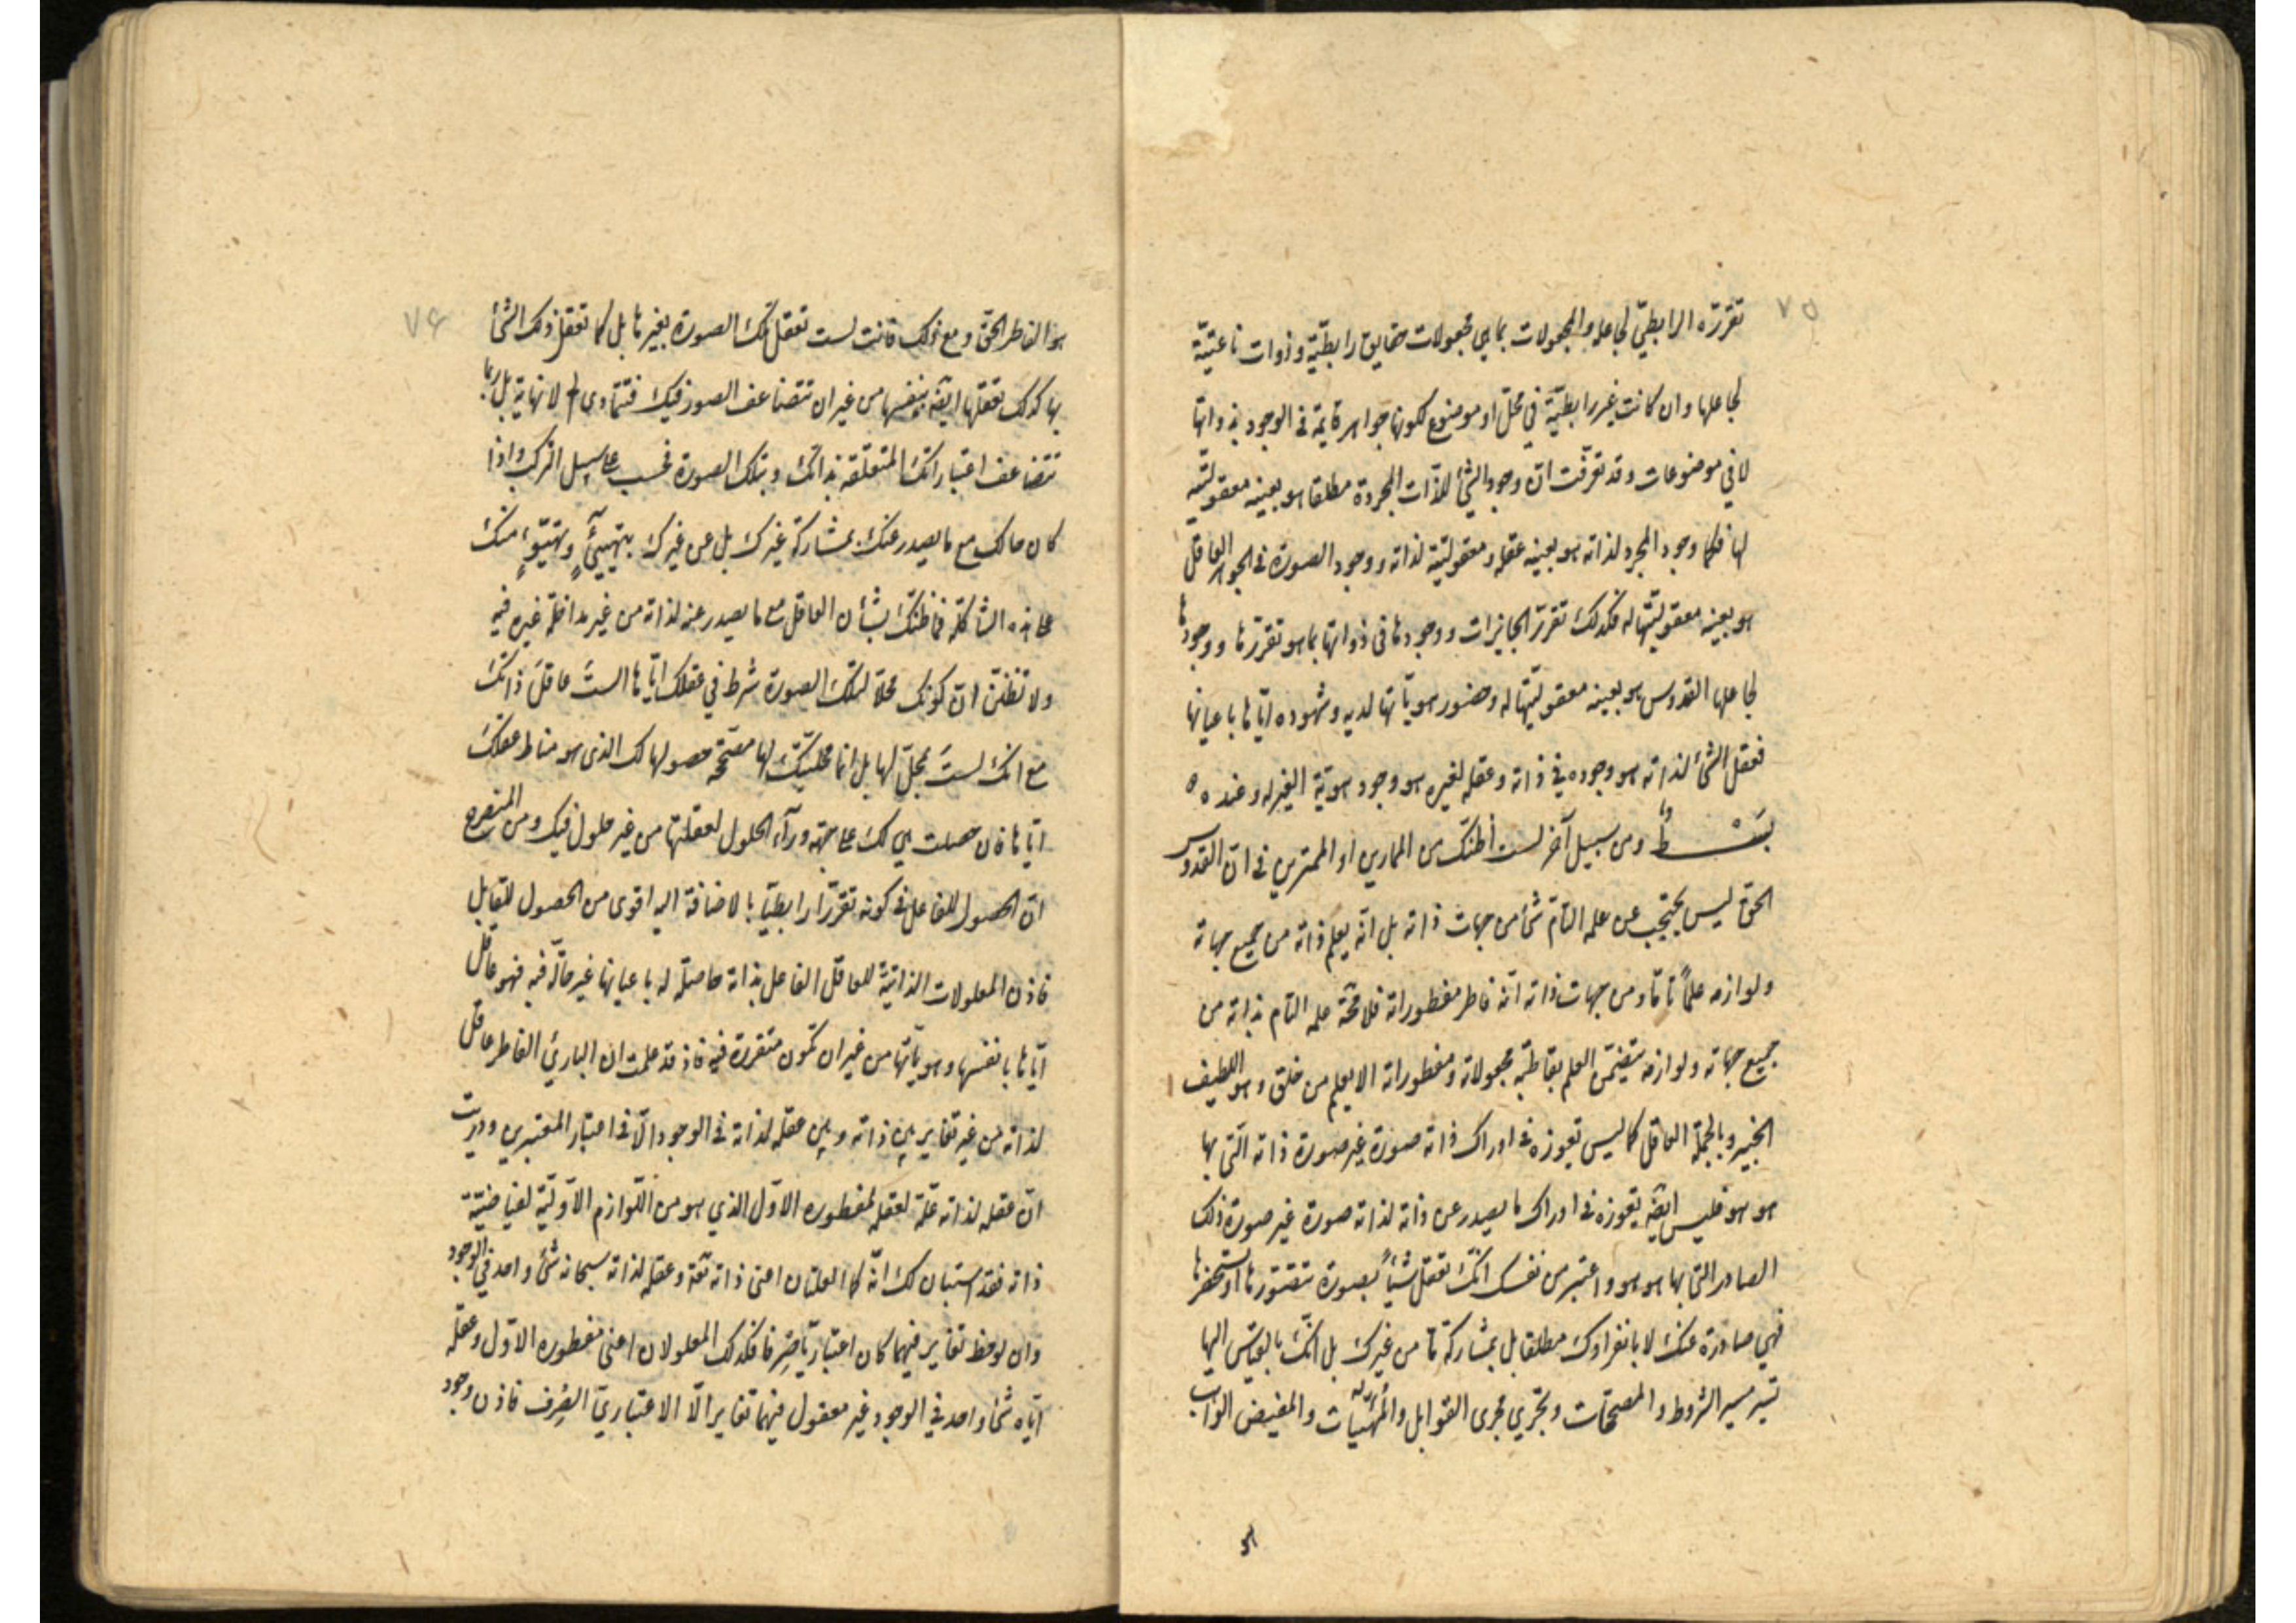 ٧٥
تقرّره الرابطيّ لجاعله والمجعولات بما هي مجعولات حقايق رابطيّة وذوات ناعتيّة
لجاعلها وان كانت غير رابطيّة في محلّ او موضوع ككونها جواهر قايمة في الوجود بذواتها
لا في موضوعات وقد تعرّفت انّ وجود الشئ للذّات المجردة مطلقا هو بعينه معقوليّته
لها فكما وجود المجرد لذاته هو بعينه عقله ومعقوليّته لذاته ووجود الصورة في الجوهر العاقل
هو بعينه معقوليّتها له فكذلك تقرّر الجايزات ووجودها في ذواتها بما هو تقرّرها ووجودها
لجاعلها القدوس هو بعينه معقوليّتها له وحضور هويّاتها لديه وشهوده ايّاها باعيانها
فعقل الشئ لذاته هو وجوده في ذاته وعقله لغيره هو وجود هويّة الغير له وعنده ه
بسط ومن سبيل آخر لست أظنّك من المارين او الممترين في انّ القدوس
الحق ليس يحتجب عن علمه التامّ شئ من جهات ذاته بل انّه يعلم ذاته من جميع جهاته
ولوازمه علماً تامّا ومن جهات ذاته انّه فاطر مفطوراته فلا محّة علمه التام بذاته من
جميع جهاته ولوازمه يتضمّن العلم بقاطبة مجعولاته ومفطوراته الا يعلم من خلق وهو اللطيف
الخبير وبالجملة العاقل كما ليس تعوزه في ادراك ذاته صورة غير صورة ذاته الّتي بها
هو هو فليس ايضا يعوزه في ادراك ما يصدر عن ذاته لذاته صورة غير صورة ذلك
الصادر التي بها هو هو واعتبر من نفسك انّك تعقل شيأً بصورة تتصوّرها او تستحضرها
فهي صادرة عنك لا بانفرادك مطلقا بل بمشاركة مّا من غيرك بل انّك بالقياس اليها
تسير مسير الشروط والمصحّحات وتجري مجرى القوابل والمهيّئات والمفيض الواهب
هو
٧۶
هو الفاطر الحقّ ومع ذلك فانت لست تعقل تلك الصورة بغيرها بل كما تعقل ذلك الشئ
بها كذلك تعقلها ايضا بنفسها من غير ان تتضاعف الصور فيك فتتمادى الى لا نهاية بل ربما
تتضاعف اعتباراتك المتعلّقة بذاتك وبتلك الصورة فحسب على سبيل التركب واذا
كان حالك مع ما يصدر عنك بمشاركة غيرك بل عن غيرك بتهيّئ وتهيّؤ منك
على هذه الشاكلة فما ظنّك بشأن العاقل مع ما يصدر عنه لذاته من غير مداخلة غيره فيه
ولا تظننّ ان كونك محلّا لتلك الصورة شرط في عقلك ايّاها الستَ عاقل ذاتك
مع انك لستَ بمحلّ لها بل انما محليّتك لها مصحّحة حصولها لك الذي هو مناط عقلك
ايّاها فان حصلت هي لك على جهة ورآء الحلول لعقلتها من غير حلول فيك ومن المنصرح
ان الحصول للفاعل في كونه تقرّرا رابطيّا بالاضافة اليه اقوى من الحصول للقابل
فاذن المعلولات الذاتيّة للعاقل الفاعل بذاته حاصلة له باعيانها غير حالّة فيه فهو عاقل
ايّاها بانفسها وهويّاتها من غير ان تكون متقررة فيه فاذ قد علمت ان البارئ الفاطر عاقل
لذاته من غير تغاير بين ذاته وبين عقله لذاته في الوجود الّا في اعتبار المعتبرين ودريت
انّ عقله لذاته علّة لعقله لمفطوره الاوّل الذي هو من اللوازم الاوّليّة لفياضيّة
ذاته فقد استبان لك انّه كما العلتان اعنى ذاته تعالى وعقله لذاته سبحانه شئ واحد في الوجود
وان لوحظ تغاير فيهما كان اعتباريّا صرفا فكذلك المعلولان اعنى مفطوره الاوّل وعقله
ايّاه شئ واحد في الوجود غير معقول فيهما تغاير الّا الاعتباريّ الصِّرف فاذن وجود